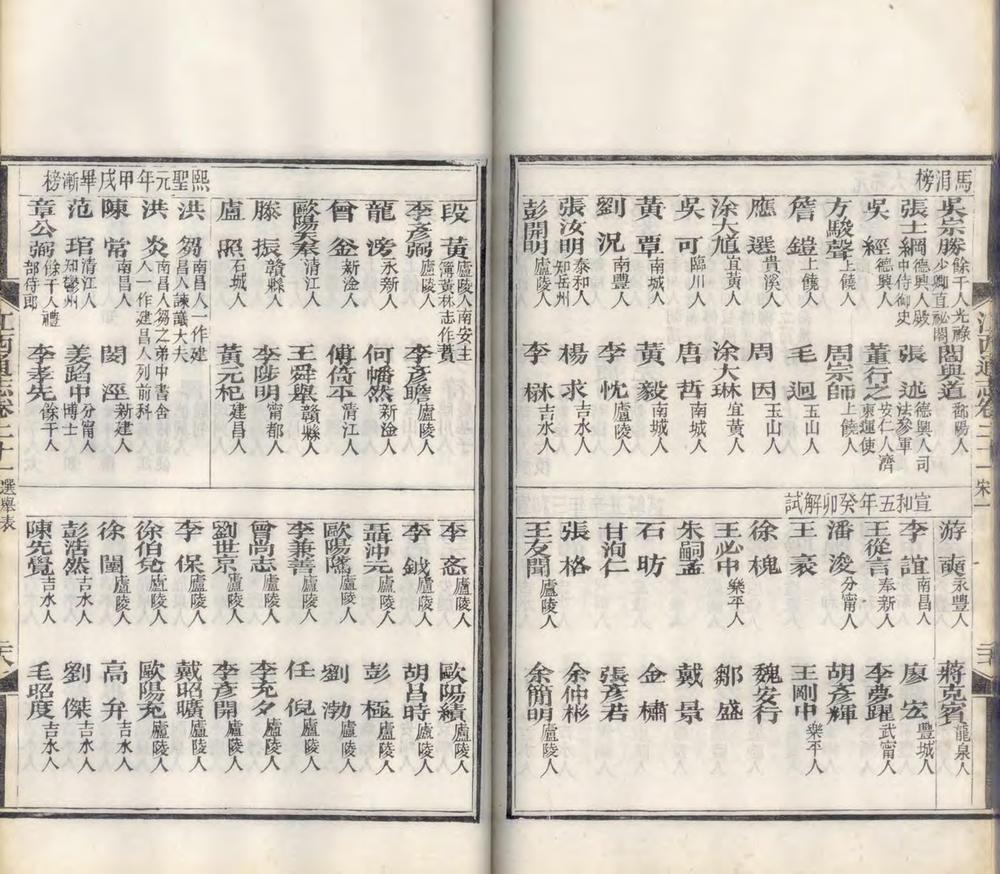 馬涓榜
吳宗勝 餘干人光祿少卿直祕閣 閻與道 鄱陽人
張士綱 德興人殿中侍御史 張述 德興人司法參軍
吳經 德興人 董行之 安仁人濟東運使
方駿聲 上饒人 周宗師 上饒人
詹鎧 上饒人 毛迴 玉山人
應選 貴溪人 周因 玉山人
涂大馗 宜黃人 涂大琳 宜黃人
吳可 臨川人 唐哲 南城人
黃覃 南城人 黃毅 南城人
劉況 南豐人 李忱 廬陵人
張汝明 泰和人知岳州 楊求 吉水人
彭開明 廬陵人 李楙 吉水人
游奭 永豐人 蔣克賓 龍泉人
宣和五年癸卯解試
李誼 南昌人 廖宏 豐城人
王從言 奉新人 李夢躍 武甯人
潘浚 分甯人 胡彥輝
王袞 王剛中 樂平人
徐槐 魏安行
王必中 樂平人 鄒盛
朱嗣孟 戴景
石昉 金橚
甘洵仁 張彥若
張格 余仲彬
王友聞 廬陵人 余簡明 廬陵人
江西通志卷二十一 宋一
段黃 廬陵人南安主簿黃林志作蕡
李彥弼 廬陵人 李彥瞻 廬陵人
龍滂 永新人 何幡然 新淦人
曾金 新淦人 傅倚平 清江人
歐陽奏 清江人 王舜舉 贛縣人
滕振 贛縣人 李陟明 甯都人
盧照 石城人 黃元杞 建昌人
熙聖元年甲戌畢漸榜
洪芻 南昌人一作建昌人諫議大夫
洪炎 南昌人芻之弟中書舍人一作建昌人列前科
陳常 南昌人 閔淫 新建人
范琯 清江人知鬱州 姜蹈中 分甯人博士
章公弼 餘干人禮部侍郎 李孝先 餘干人
李㤅 廬陵人 歐陽績 廬陵人
李鉞 廬陵人 胡昌時 廬陵人
聶沖元 廬陵人 彭極 廬陵人
歐陽隲 廬陵人 劉渤 廬陵人
李兼善 廬陵人 任倪 廬陵人
曾尚志 廬陵人 李充夕 廬陵人
劉世京 廬陵人 李彥開 廬陵人
李保 廬陵人 戴昭曠 廬陵人
徐伯兌 廬陵人 歐陽充 廬陵人
徐闓 廬陵人 高弁 吉水人
彭浩然 吉水人 劉傑 吉水人
陳先覺 吉水人 毛昭度 吉水人
江西通志卷二十一 選舉表